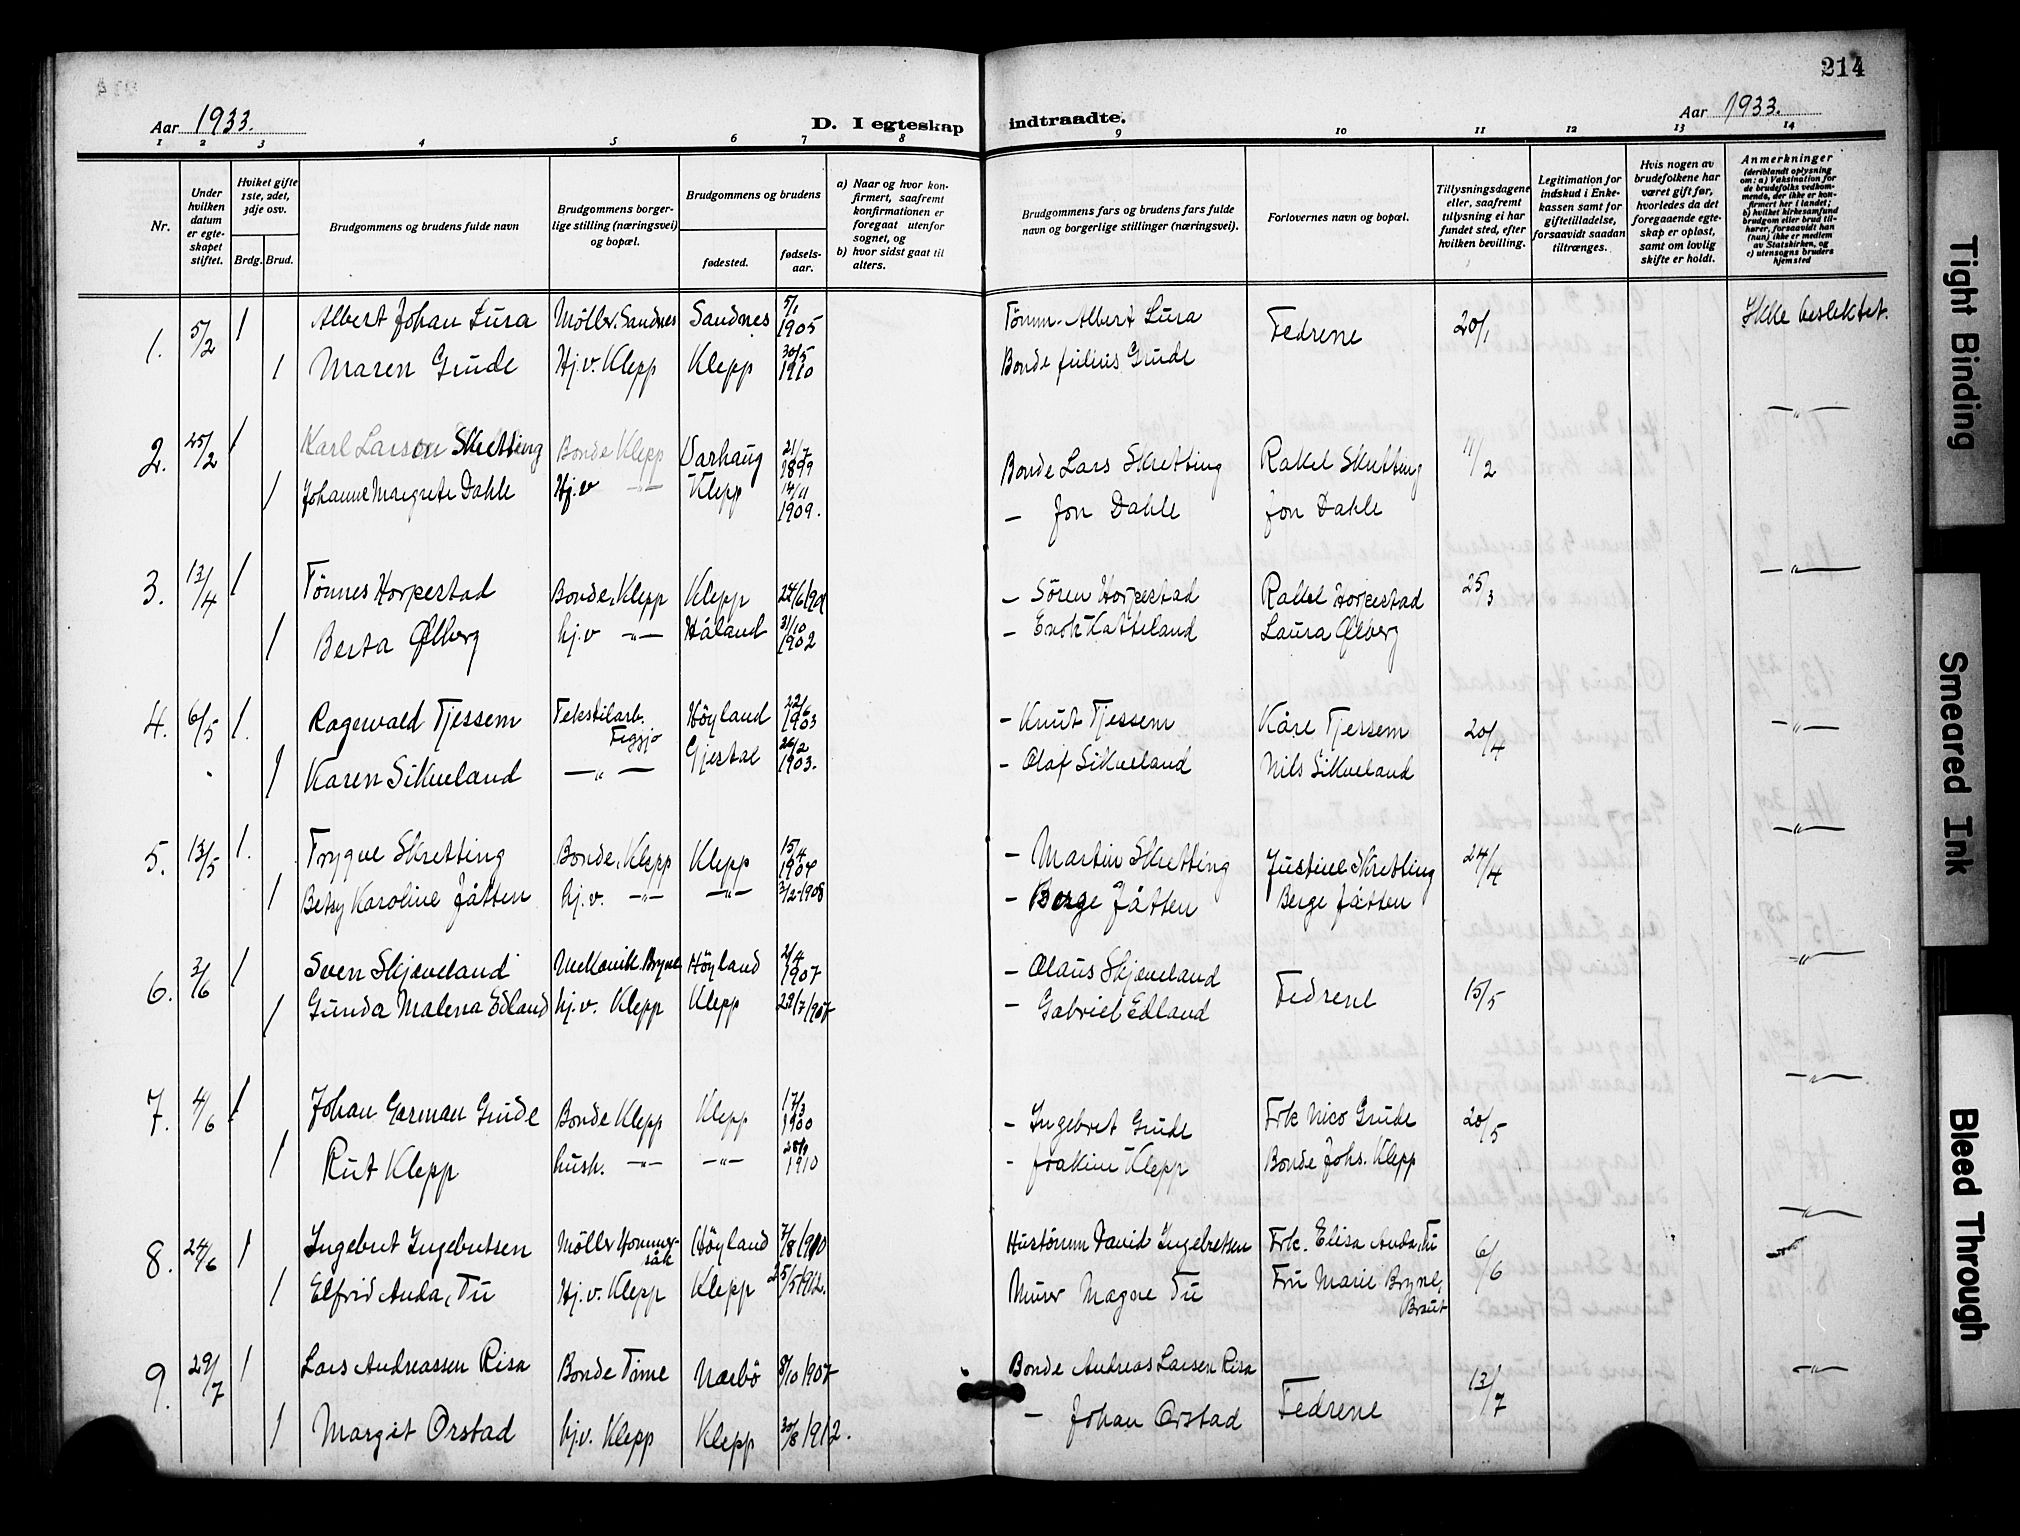 214
Aar 1933.
D. I egteskap indtraadte.
Aar 1933.
1 2 3 4 5 6 7 8 9 10 11 12 13 14
Nr.
Under hvilken datum er egteskapet stiftet.
Hvilket gifte 1ste, 2det, 3dje osv.
Brdg. Brud.
Brudgommens og brudens fulde navn
Brudgommens borgerlige stilling (næringsvei) og bopæl.
Brudgommens og brudens
fødested.
fødselsaar.
a) Naar og hvor konfirmert, saafremt konfirmationen er foregaat utenfor sognet, og
b) hvor sidst gaat til alters.
Brudgommens fars og brudens fars fulde navn og borgerlige stillinger (næringsvei).
Forlovernes navn og bopæl.
Tillysningsdagene eller, saafremt tillysning ei har fundet sted, efter hvilken bevilling.
Legitimation for indskud i Enkekassen samt for giftetilladelse, forsaavidt saadan tiltrænges.
Hvis nogen av brudefolkene har været gift før, hvorledes da det foregaaende egteskap er opløst, samt om lovlig skifte er holdt.
Anmerkninger (deriblandt oplysning om: a) Vaksination for de brudefolks vedkommende, der ikke er konfirmert her i landet; b) hvilket kirkesamfund brudgom eller brud tilhører, forsaavidt han (hun) ikke er medlem av Statskirken, og c) utensogns bruders hjemsted
1. 5/2 1 Albert Johan Lura Møller. Sandnes Sandnes 5/1 1905 Tømm. Albert Lura Fedrene 20/1 Ikke beslektet.
1 Maren Grude Hj.v. Klepp Klepp 30/5 1910 Bonde Julius Grude
2. 25/2 1 Karl Larson Skretting Bonde Klepp Varhaug 21/7 1899 Bonde Lars Skretting Rakel Skretting 11/2 —"—
1 Johanne Margrete Dahle Hj.v —"— Klepp 14/11 1909. — Jon Dahle Jon Dahle
3. 13/4 1 Tønnes Horpestad Bonde, Klepp Klepp 24/6 1901 — Søren Horpestad Rakel Horpestad 25/3 —"—
1 Berta Ølberg hj.v —"— Håland 31/10 1902 — Enok Katteland Laura Ølberg
4. 6/5 1. Ragewald Tjessem Tekstilarb. Figgjo Høyland 22/6 1903 — Knut Tjessem Kåre Tjessem 20/4 —"—
1 Karen Sikveland —"— Gjestal 26/2 1903. — Olaf Sikveland Nils Sikveland
5. 13/5 1. Trygve Skretting Bonde, Klepp Klepp 15/4 1904 — Martin Skretting Justine Skretting 24/4 —"—
1 Betsy Karoline Jåtten hj.v. —"— —"— 3/2-1908 — Berge Jåtten Berge Jåtten
6. 3/6 1 Sven Skjæveland Mekanik. Bryne Høyland 2/4 1907 — Olaus Skjæveland Fedrene 15/5 —"—
1 Gunda Malena Edland hj.v. Klepp Klepp 22/7 1907 — Gabriel Edland
7. 4/6 1 Johan German Grude Bonde Klepp Klepp 17/3 1900 — Ingebret Grude Frk Nico Grude 20/5 —"—
1 Rut Klepp hush. —"— —"— 1910 — Joakim Klepp Bonde Johs. Klepp
8. 24/6 1 Ingebret Ingebretsen Møller Hommersåk Høyland 7/8 1910 Hustømm David Ingebretsen Frk. Elisa Anda, Tu 6/6 —"—
1 Elfrid Anda, Tu Hj.v. Klepp Klepp 25/5 1912. Murer Magne Tu Fru Marie Bryne, Braut
9. 29/7 1 Lars Andreassen Risa Bonde Time Nærbø 8/10 1907 Bonde Andreas Larsen Risa Fedrene 13/7 —"—
1 Margit Orstad hj.v. Klepp Klepp 30/8 1912. — Johan Orstad
Tight Binding
Smeared Ink
Bleed Through